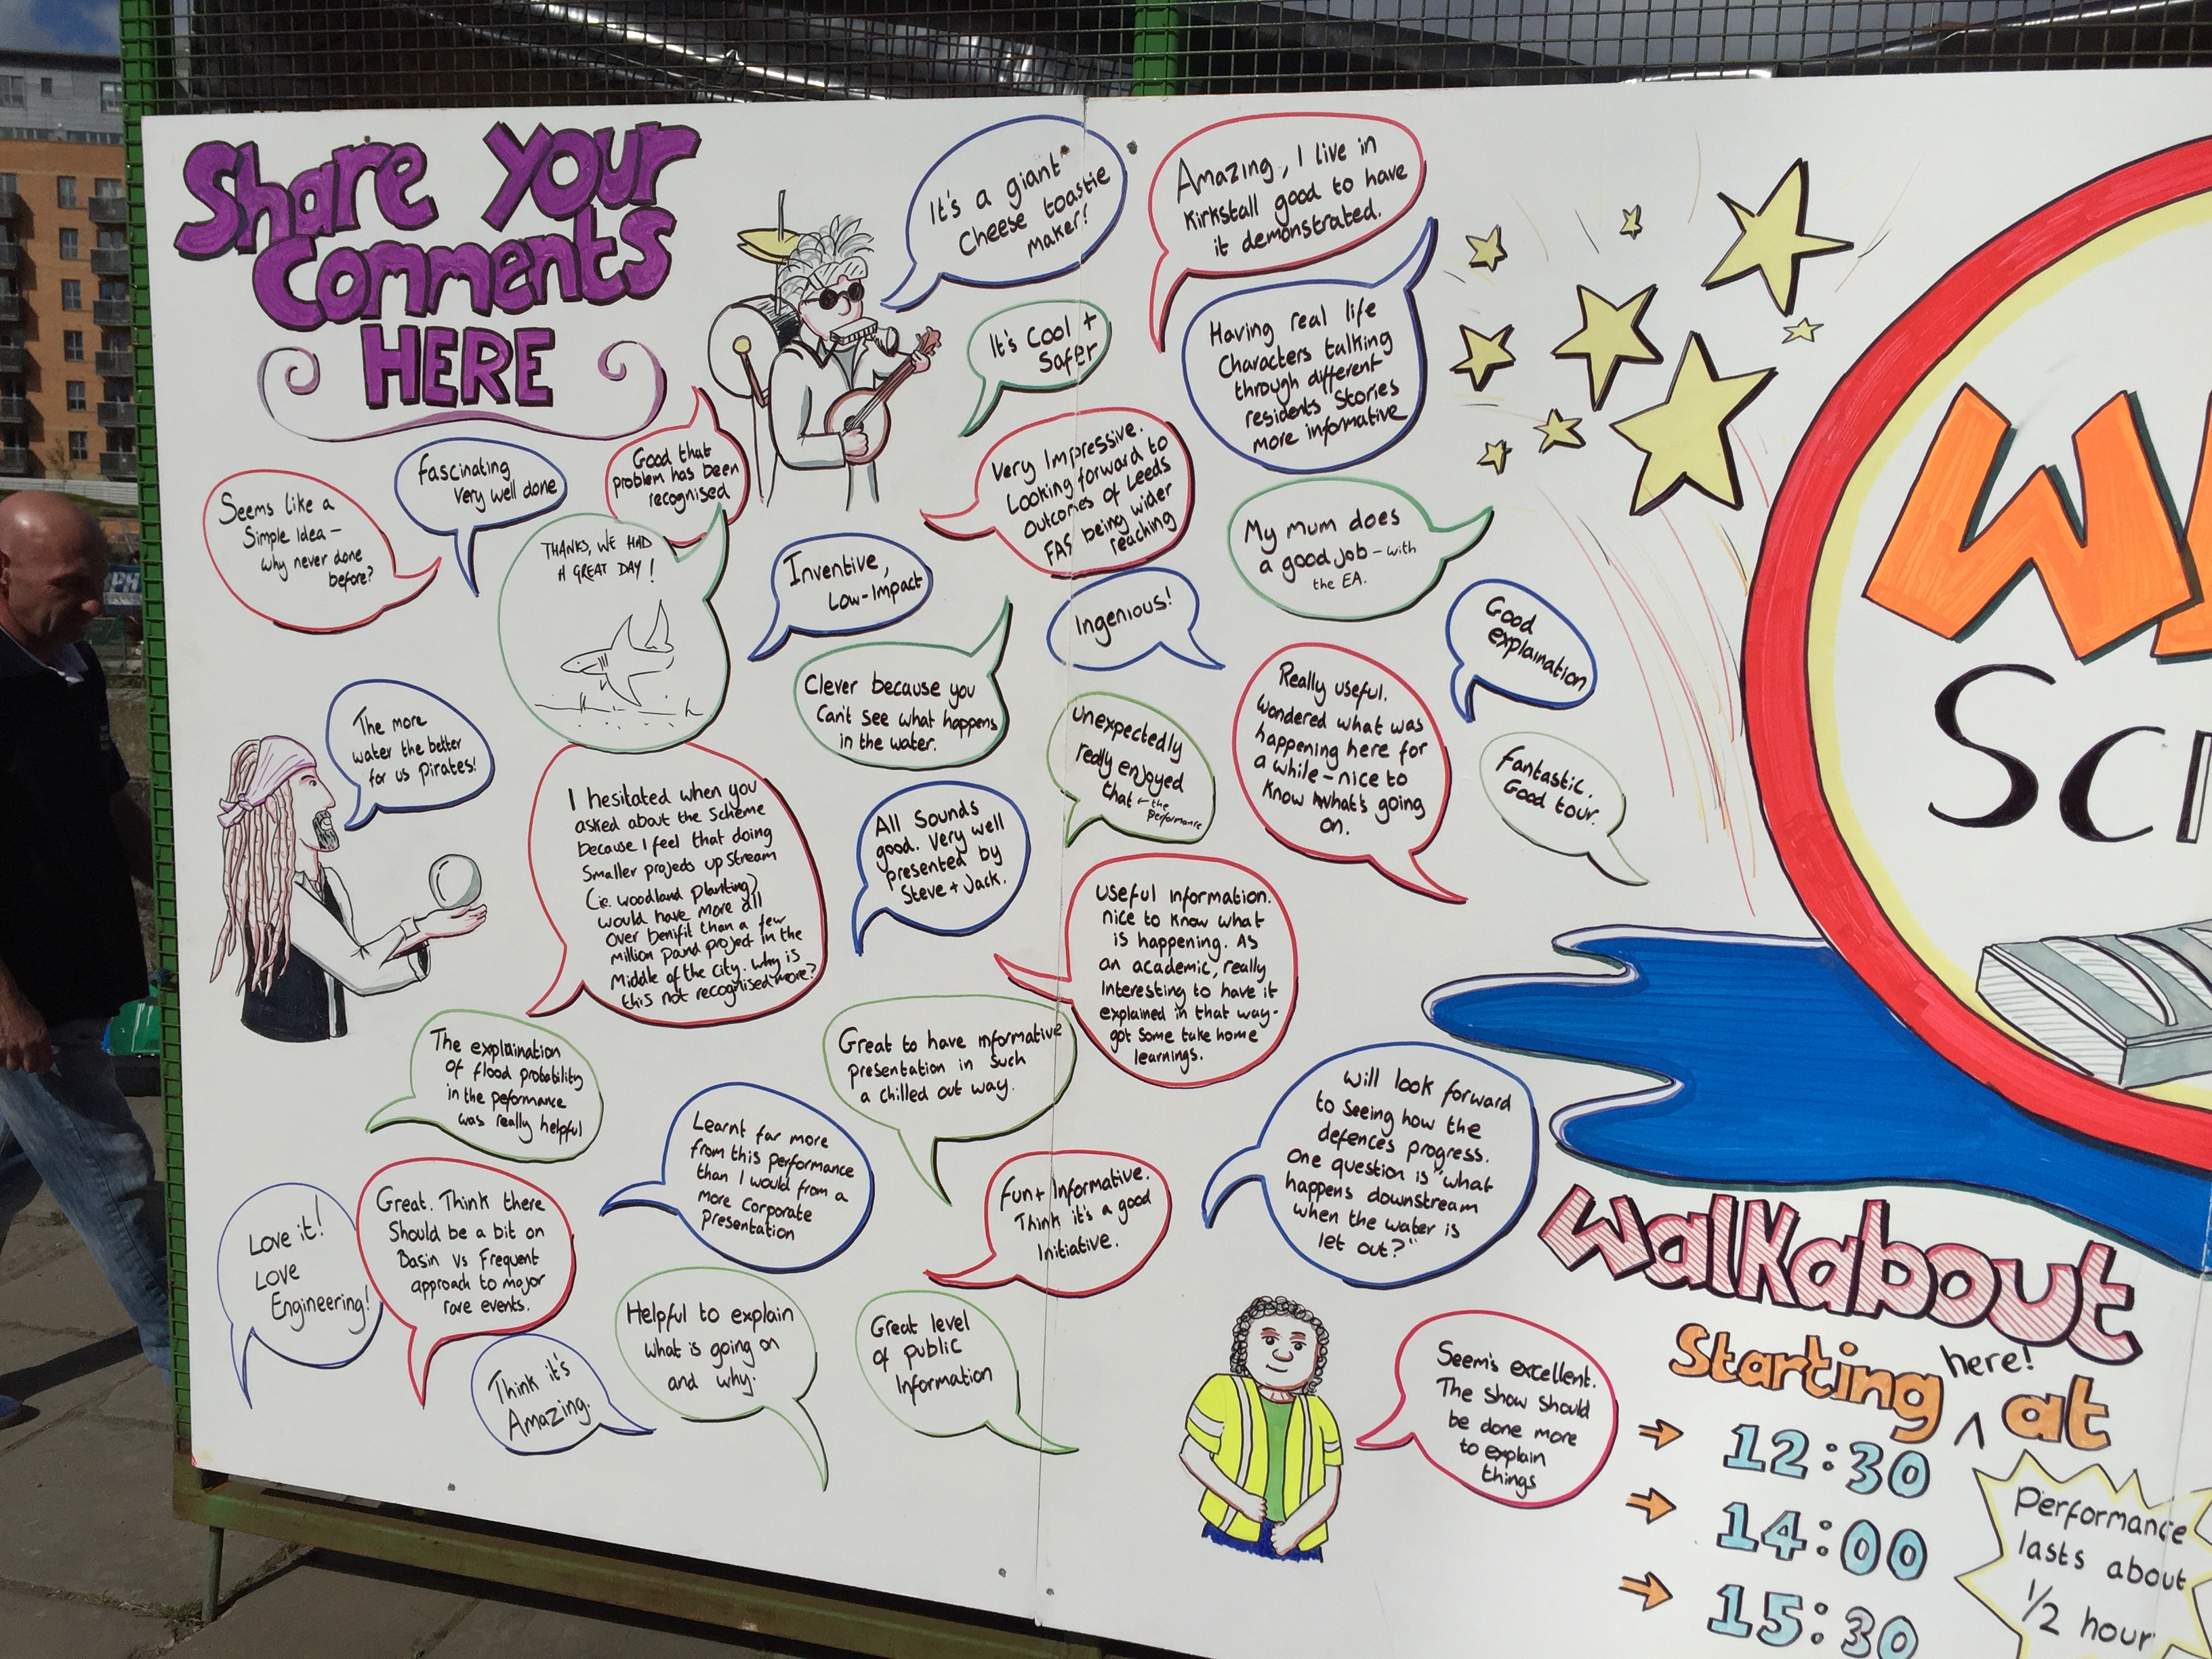 Share Your
Comments
HERE
It's a giant
Cheese toastie
maker!
Amazing, I live in
Kirkstall good to have
it demonstrated.
It's Cool +
Safer
Having real life
Characters talking
through different
residents Stories
more informative
Seems like a
Simple Idea -
why never done
before?
Fascinating
very well done
Good that
problem has been
recognised
THANKS, WE HAD
A GREAT DAY!
Very Impressive.
Looking forward to
Outcomes of Leeds
FAS being wider
reaching
My Mum does
a good job - with
the EA.
Inventive,
Low-Impact
Ingenious!
Good
explaination
The more
water the better
for us Pirates!
Clever because you
Can't see what happens
in the water.
Unexpectedly
really enjoyed
that - the
performance
Really useful.
Wondered what was
happening here for
a while - nice to
Know what's going
on.
Fantastic.
Good tour.
I hesitated when you
asked about the Scheme
because I feel that doing
Smaller projects up stream
(ie. woodland planting)
would have more all
over benifit than a few
million pound project in the
middle of the city. Why is
this not recognised more?
All Sounds
good. Very well
presented by
Steve + Jack.
Useful Information.
nice to know what
is happening. As
an academic, really
Interesting to have it
explained in that way -
got some take home
learnings.
The explaination
of flood probability
in the peformance
was really helpful
Great to have informative
presentation in such
a chilled out way.
Learnt far more
from this performance
than I would from a
more Corporate
Presentation
Will look forward
to seeing how the
defences progress.
One question is "what
happens downstream
when the water is
let out?"
Love it!
Love
Engineering!
Great. Think there
Should be a bit on
Basin vs Frequent
approach to major
rare events.
Fun + Informative.
Think it's a good
Initiative.
Think it's
Amazing.
Helpful to explain
What is going on
and why.
Great level
of public
Information
Seem's excellent.
The show should
be done more
to explain
things
W
SCI
Walkabout
Starting here! at
12:30
14:00
15:30
Performance
lasts about
1/2 hour